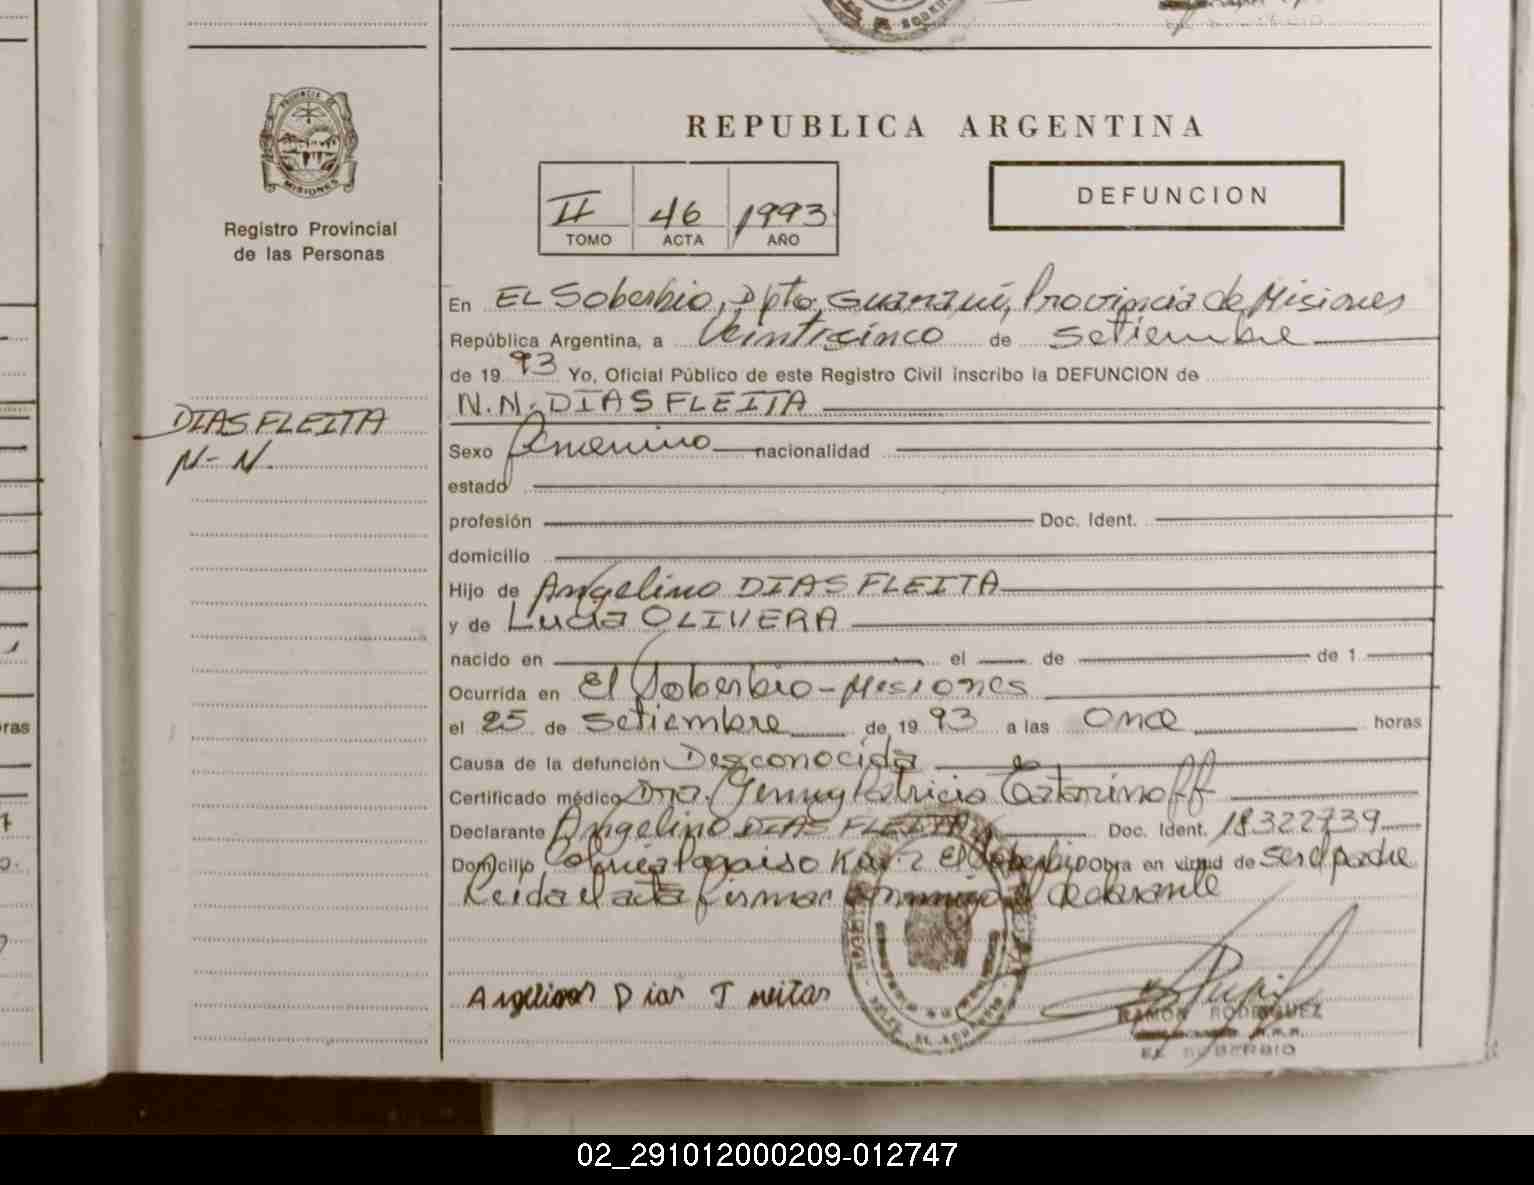 PROVINCIA DE
MISIONES
Registro Provincial
de las Personas
DIAS FLEITA
N-N.
REPUBLICA ARGENTINA
II 46 1993
TOMO ACTA AÑO
DEFUNCION
En EL Soberbio, Dpto, Guaraní, Provincia de Misiones
República Argentina, a Veinticinco de Setiembre
de 19 93 Yo, Oficial Público de este Registro Civil inscribo la DEFUNCION de
N.N. DIAS FLEITA
Sexo femenino nacionalidad
estado
profesión Doc. Ident.
domicilio
Hijo de Angelino DIAS FLEITA
y de Lucia OLIVERA
nacido en el de de 1
Ocurrida en El Soberbio-Misiones
el 25 de Setiembre de 19 93 a las Once horas
Causa de la defunción Desconocida
Certificado médico Dra. Jenny Patricia Catarinoff
Declarante Angelino DIAS FLEITA Doc. Ident. 18322739
Domicilio Colonia Paraiso El Soberbio Obra en virtud de ser el padre
Leida el acta firmar conmigo el declarante
Dias
RAMON RODRIGUEZ
EL SOBERBIO
02_291012000209-012747